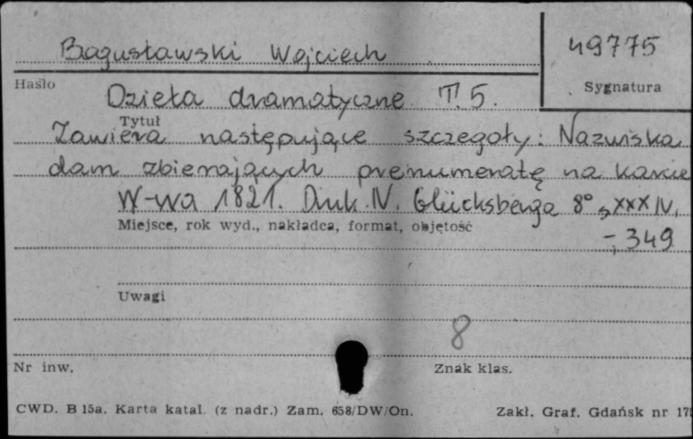 Bogusławski Wojciech
49775
Hasło
Sygnatura
Dzieła dramatyczne T. 5.
Tytuł
Zawiera następujące szczegoły: Nazwiska
dam zbierających prenumeratę na karcie
W-wa 1821. Druk. N. Glücksberga 8° s XXXIV,
Miejsce, rok wyd., nakładca, format, objętość
-, 349
Uwagi
8
Nr inw.
Znak klas.
CWD. B 15a. Karta katal. (z nadr.) Zam. 658/DW/On.
Zakł. Graf. Gdańsk nr